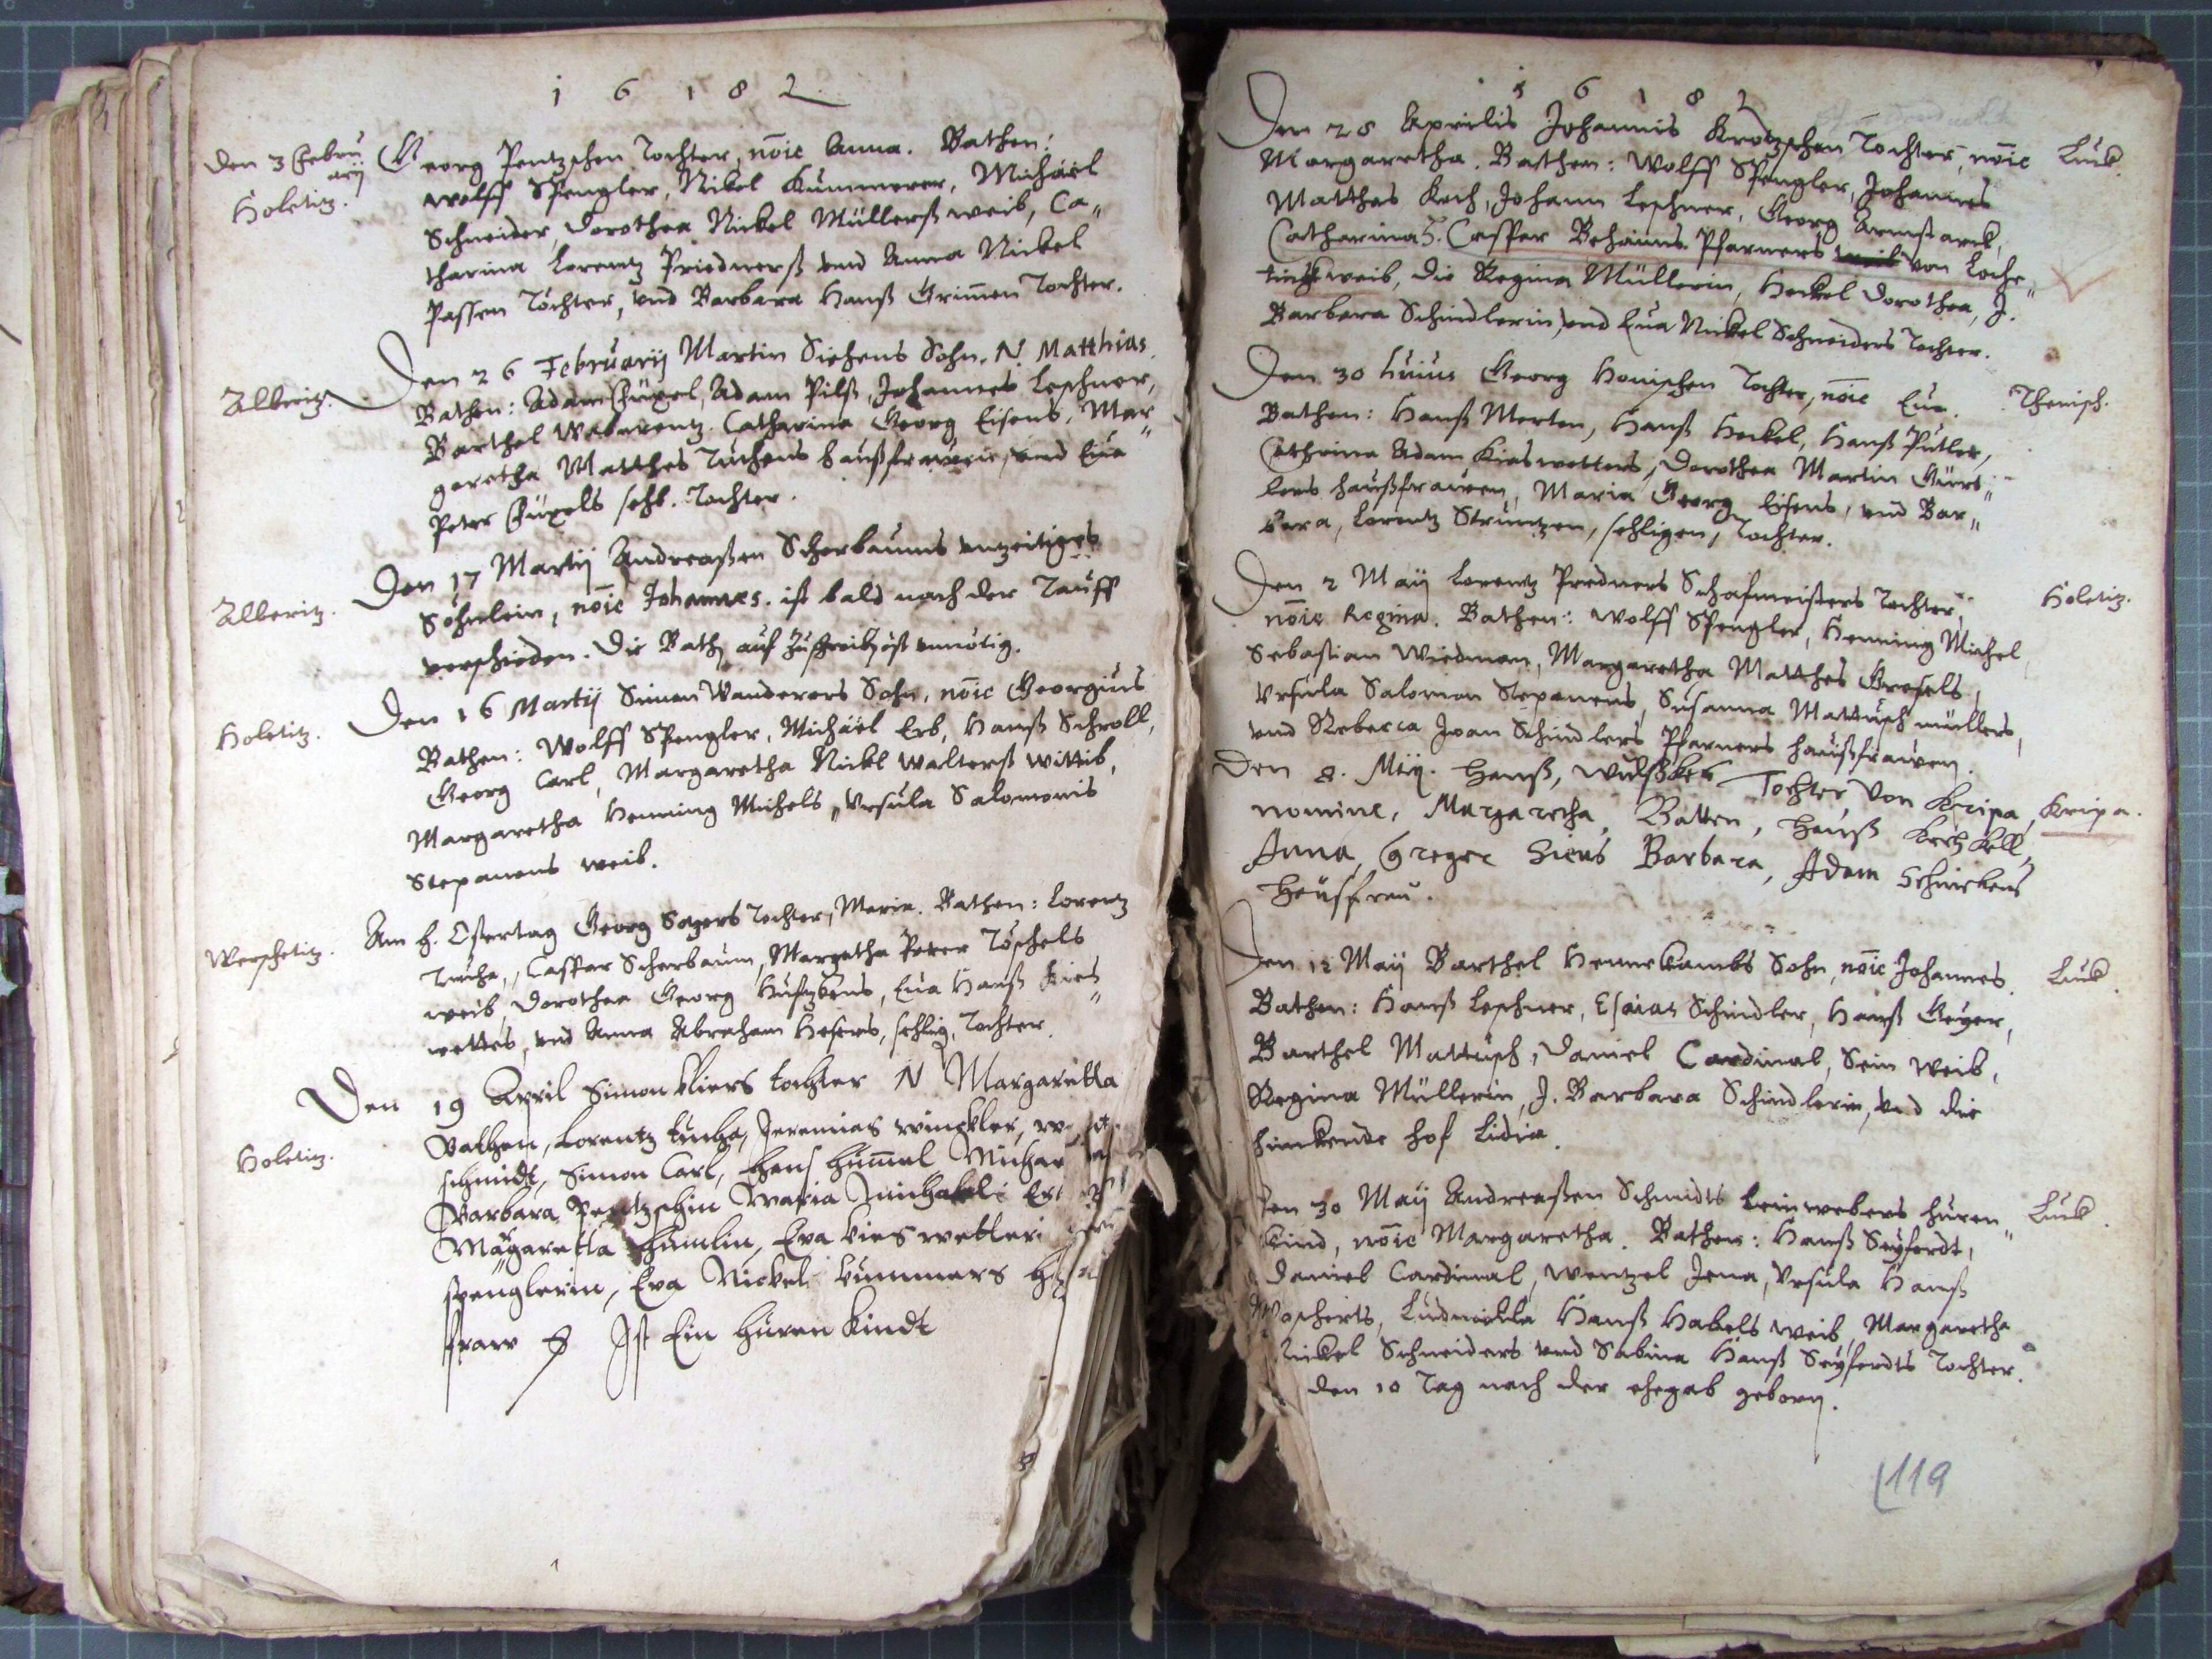 1 6 1 8 2
Den 3 Febru
arij
Holetitz.
Georg Pentzschen Tochter, noïe Anna. Pathen:
Wolff Spengler, Nikel Kummerer, Michäel
Schneider, Dorothea Nickel Müllerß weib, Ca„
tharina Lorentz Priednerß vnd Anna Nickel
Passen Töchter, vnd Barbara Hanß Grimmen Tochter.
Alberitz.
Den 26 Februarij Martin Siehens Sohn. N Matthias.
Pathen: Adam Adam Pilß, Johannes Leschner,
Barthel Catharina Georg Eisens, Mar„
garetha Matthes Tuchens haußfrawen, vnd Eua
Peter sehl. Tochter.
Alberitz.
Den 17 Martij Andreaßen Scherbaums vnzeitiges
Söhnlein, noïe Johannes. ist bald nach der Tauff
verschieden. Die Path auf vnnötig.
Holetitz.
Den 16 Martij Simon Wanderers Sohn, noïe Georgius
Pathen: Wolff Spengler, Michäel Erb, Hanß Schroll,
Georg Carl, Margaretha Nickl Walterß wittib,
Margaretha Henning Michels, Vrsula Salomonis
Stepanens weib.
Werschetitz.
Am h. Ostertag Georg Sagers Tochter, Maria. Pathen: Lorentz
Tucha, Caspar Scherbaum, Margetha Peter Töschels
weib, Dorothea Georg Eua Hanß Kies„
wetters, vnd Anna Abraham Hesers, sehlig, Tochter.
Holetitz.
Den 19 April Simon Kliers tochter N Margaretta
Pathen, Lorentz tucha, Jeremias winckler,
schmidt, Simon Carl, Hans Hummel
Barbara Pentzschin Maria
Margaretta Humlin, Eva Kieswetteri
spenglerin, Eva Nickel Kummers
fraw Ist Ein huren Kindt
1 6 1 8 2
Den 28 Aprilis Johannis Krotzschen Tochter, noïe
Luck.
Margaretha. Pathen: Wolff Spengler, Johannes
Matthas Koch, Johann Leschner, Georg Armstarck,
Catharina H. Caspar Behaims Pfarners von Loche„
titz weib, die Regina Müllerin, Heckel Dorothea, J.
Barbara Schindlerin, vnd Eua Nickel Schneiders Tochter.
Den 30 huius Georg Honischen Tochter, noïe Eua.
Therisch.
Pathen: Hanß Merten, Hanß Heckel, Hanß Putler,
Cathrina Adam Kieswetters, Dorothea Martin Gürt„
lers haußfrawen, Maria Georg Eisens, vnd Bar„
bara, Lorentz Struntzen, sehligen, Tochter.
Den 2 Maij Lorentz Predners Schafmeisters Tochter,
Holetitz.
noïe Regina. Pathen: Wolff Spengler, Henning Michel,
Sebastian Wiedman, Margaretha Matthes Gresels,
Vrsula Salomon Stepanens, Susanna Mattusch müllers,
vnd Rebecca Joan Schindlers Pfarners haußfrawen.
Den 8. Mey. Hanß, Tochter von Kripa,
Kripa.
nomine, Margaretha, Patten, Hanß
Anna, Greger Siens Barbara, Adam Schinckens
Heusfrau.
Den 12 Maij Barthel Hennekambs Sohn, noïe Johannes.
Luck.
Pathen: Hanß Leschner, Esaias Schindler, Hanß Geyer,
Barthel Mattusch, Daniel Cardinal, Sein Weib,
Regina Müllerin, J. Barbara Schindlerin, vnd die
hinkende hof Lidia.
Den 30 Maij Andreaßen Schmidts Leinwebers huren„
Luck.
kind, noïe Margaretha. Pathen: Hanß Seyferdt,
Daniel Cardinal, Wentzel Jena, Vrsula Hanß
Ludmilla Hanß Habels weib, Margaretha
Nickel Schneiders vnd Sabina Hanß Seyferdts Tochter.
den 10 Tag nach der ehegab geborn.
119